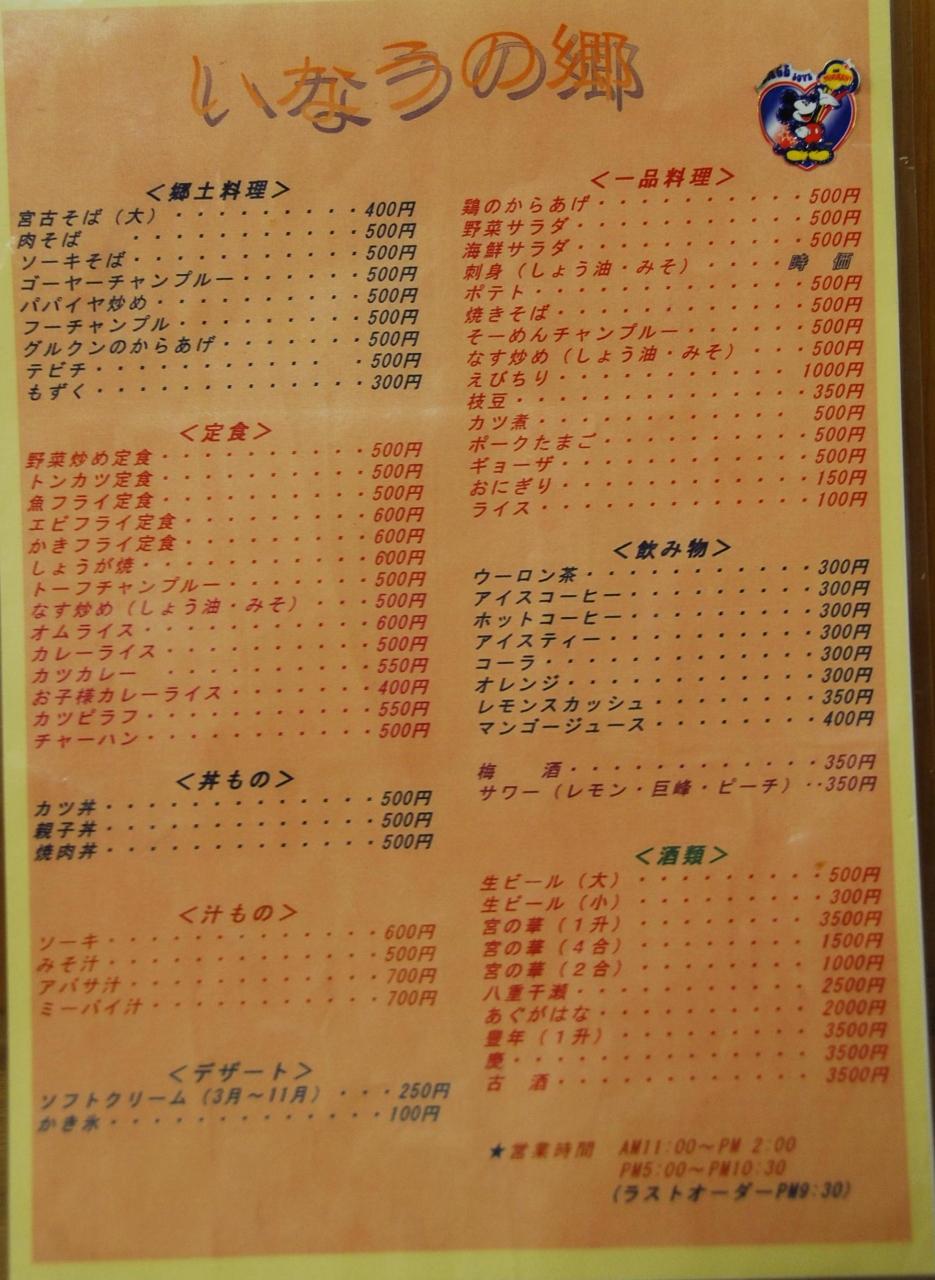 いなうの郷
＜郷土料理＞
宮古そば（大）・・・・・・・・・・400円
肉そば　・・・・・・・・・・・・500円
ソーキそば・・・・・・・・・・・・500円
ゴーヤーチャンプルー・・・・・・・500円
パパイヤ炒め・・・・・・・・・・・500円
フーチャンプル・・・・・・・・・・500円
グルクンのからあげ・・・・・・・・500円
テビチ・・・・・・・・・・・・・・500円
もずく・・・・・・・・・・・・・・300円
＜定食＞
野菜炒め定食・・・・・・・・・・・500円
トンカツ定食・・・・・・・・・・・500円
魚フライ定食・・・・・・・・・・・500円
エビフライ定食・・・・・・・・・・600円
かきフライ定食・・・・・・・・・・600円
しょうが焼・・・・・・・・・・・・600円
トーフチャンプルー・・・・・・・・500円
なす炒め（しょう油・みそ）・・・500円
オムライス・・・・・・・・・・・・600円
カレーライス・・・・・・・・・・・500円
カツカレー　・・・・・・・・・・・550円
お子様カレーライス・・・・・・・・400円
カツピラフ・・・・・・・・・・・・550円
チャーハン・・・・・・・・・・・・500円
＜丼もの＞
カツ丼・・・・・・・・・・・・・・500円
親子丼・・・・・・・・・・・・・・500円
焼肉丼・・・・・・・・・・・・・・500円
＜汁もの＞
ソーキ・・・・・・・・・・・・・・600円
みそ汁・・・・・・・・・・・・・・500円
アバサ汁・・・・・・・・・・・・・700円
ミーバイ汁・・・・・・・・・・・・700円
＜デザート＞
ソフトクリーム（3月～11月）・・・250円
かき氷・・・・・・・・・・・・・・100円
＜一品料理＞
鶏のからあげ・・・・・・・・・・・500円
野菜サラダ・・・・・・・・・・・・500円
海鮮サラダ・・・・・・・・・・・・500円
刺身（しょう油・みそ）・・・・時　価
ポテト・・・・・・・・・・・・・・500円
焼きそば・・・・・・・・・・・・・500円
そーめんチャンプルー・・・・・・・500円
なす炒め（しょう油・みそ）・・・500円
えびちり・・・・・・・・・・・・1000円
枝豆・・・・・・・・・・・・・・・350円
カツ煮・・・・・・・・・・・・・・500円
ポークたまご・・・・・・・・・・・500円
ギョーザ・・・・・・・・・・・・・500円
おにぎり・・・・・・・・・・・・・150円
ライス・・・・・・・・・・・・・・100円
＜飲み物＞
ウーロン茶・・・・・・・・・・・・300円
アイスコーヒー・・・・・・・・・・300円
ホットコーヒー・・・・・・・・・・300円
アイスティー・・・・・・・・・・・300円
コーラ・・・・・・・・・・・・・・300円
オレンジ・・・・・・・・・・・・・300円
レモンスカッシュ・・・・・・・・・350円
マンゴージュース・・・・・・・・・400円
梅　　酒・・・・・・・・・・・・・350円
サワー（レモン・巨峰・ピーチ）・・350円
＜酒類＞
生ビール（大）・・・・・・・・・・500円
生ビール（小）・・・・・・・・・・300円
宮の華（１升）・・・・・・・・・3500円
宮の華（４合）・・・・・・・・・1500円
宮の華（２合）・・・・・・・・・1000円
八重干瀬・・・・・・・・・・・・2500円
あぐがはな・・・・・・・・・・・2000円
豊年（１升）・・・・・・・・・・3500円
慶・・・・・・・・・・・・・・・3500円
古　酒・・・・・・・・・・・・・3500円
★営業時間　AM11:00～PM 2:00
PM5:00～PM10:30
（ラストオーダーPM9:30）